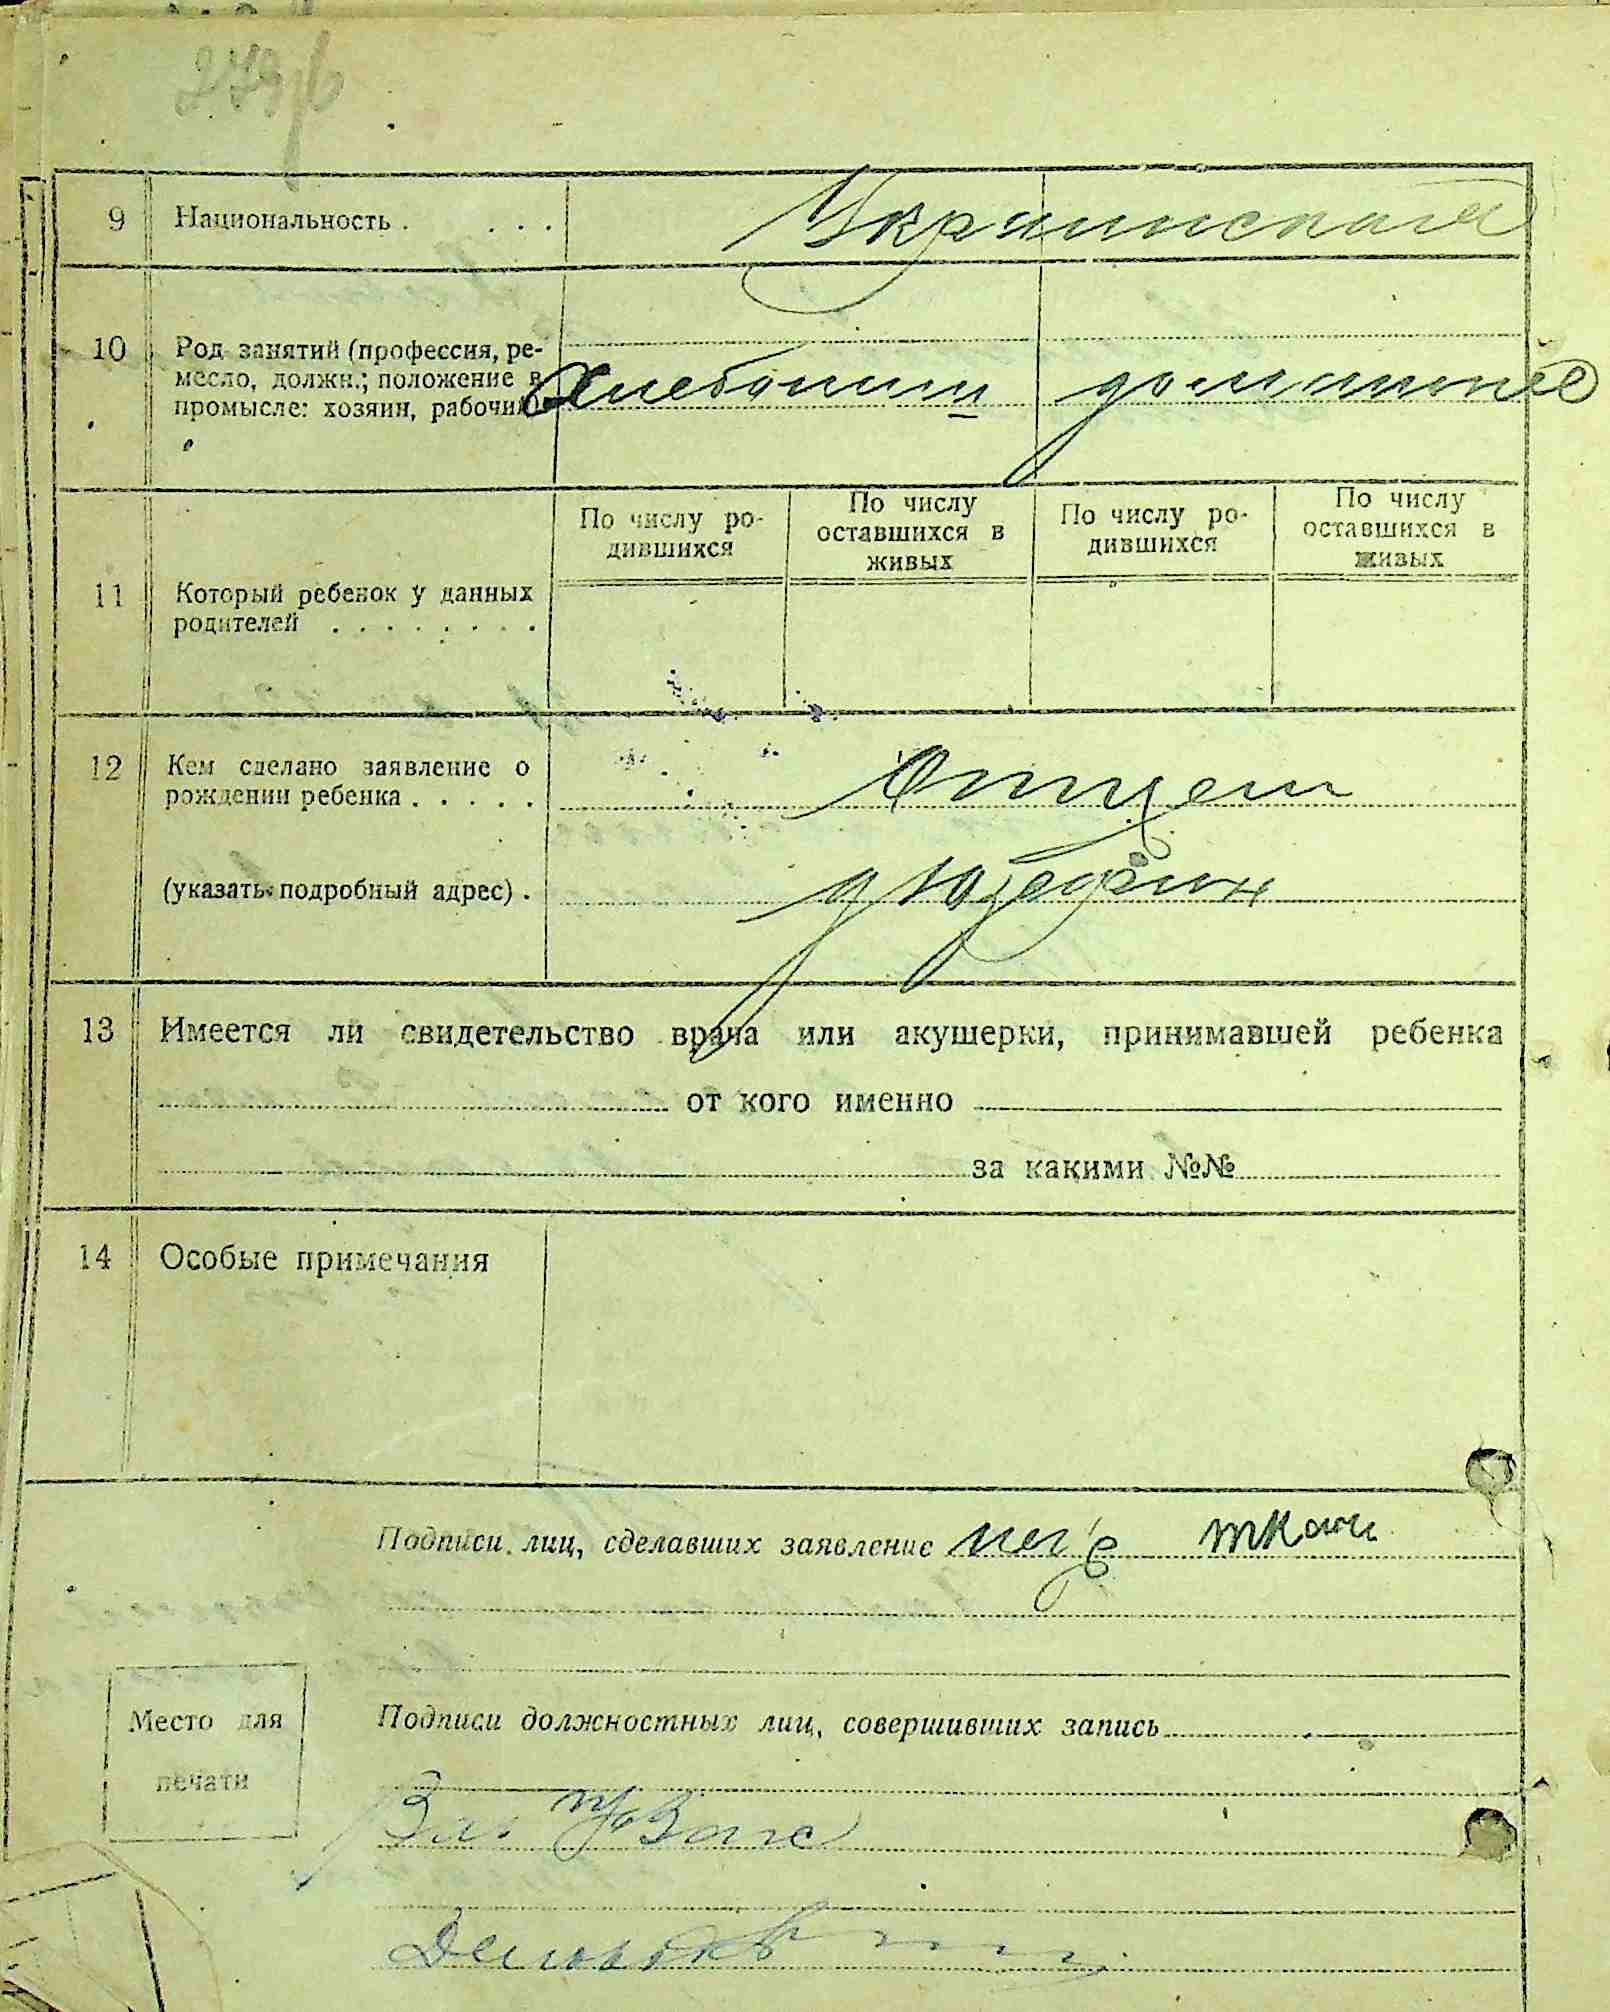 9 Национальность . . . . Украинская
10 Род занятий (профессия, ре-
месло, должн.; положение в
промысле: хозяин, рабочий)
Хлебопаш домашнее
По числу ро-
дившихся
По числу
оставшихся в
живых
По числу ро-
дившихся
По числу
оставшихся в
живых
11 Который ребенок у данных
родителей . . . . . . . .
12 Кем сделано заявление о
рождении ребенка . . . . . Отцем
(указать подробный адрес) .
13 Имеется ли свидетельство врача или акушерки, принимавшей ребенка
от кого именно
за какими №№
14 Особые примечания
Подписи лиц, сделавших заявление
Место для
печати
Подписи должностных лиц, совершивших запись